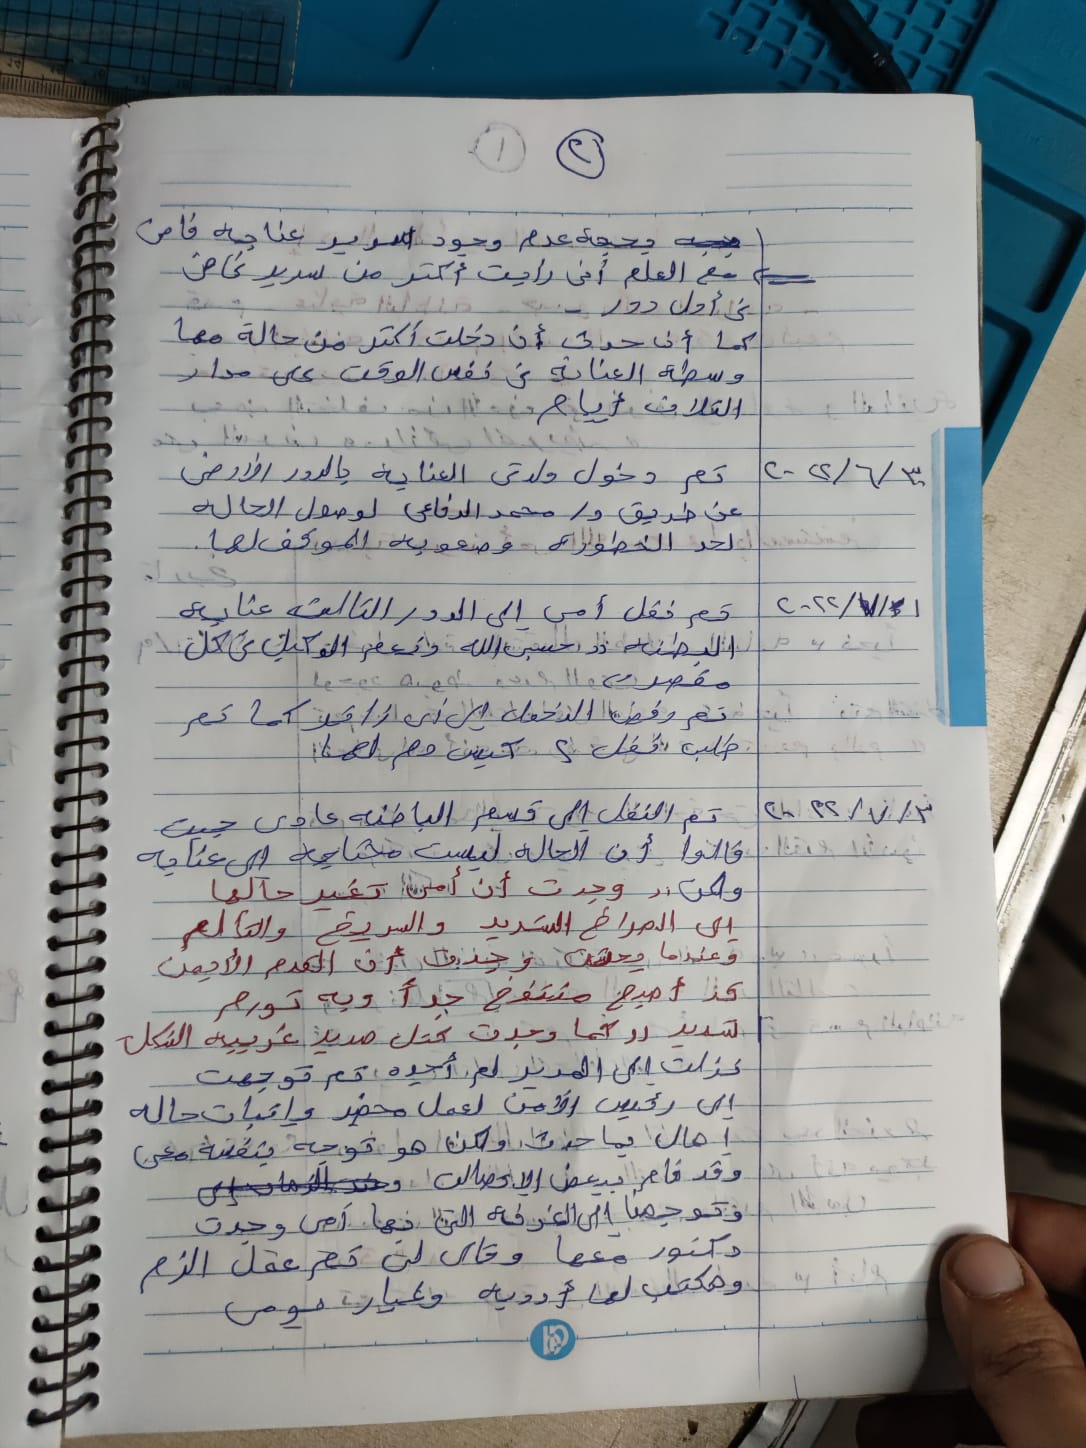 ١ ٢
وبحجة عدم وجود سرير عناية فاضى
مع العلم أنى رايت أكتر من سرير فاضى
فى أول دور
كما أن حدث أن دخلت أكتر من حالة معها
وسطه العناية فى نفس الوقت على مدار
الثلاث أيام
٢٠٢٢/٦/٣٠ تم دخول والدتى العناية بالدور الأرضى
عن طريق د/ محمد الرفاعى لوصول الحاله
لحد الخطوره وصعوبه الموقف لها.
٢٠٢٢/٧/١ تم نقل أمى إلى الدور الثالث عناية
الباطنه " حسبى الله ونعم الوكيل فى كل
مقصر "
تم رفض الدخول إلى أى كما تم
طلب نقل ٢ كيس دم لها
٢٠٢٢/٧/٣ تم النقل إلى قسم الباطنه عادى حيث
قالوا أن الحاله ليست محتاجه إلى عنايه
ولكن " وجدت أن أمى تغير حالها
إلى الصراخ الشديد والسريخ والتألم
وعندما وجدت أن القدم الأيمن
قد أصبح منتفخ جداً وبه تورم
شديد " كما وجدت كتل صديد غريبه الشكل
نزلت إلى المدير لم أجده ثم توجهت
إلى رئيس الأمن لعمل محضر واثبات حاله
اهمال بما حدث ولكن هو توجه بنفسه معى
وقد قام ببعض الاتصالات
وتوجهنا إلى الغرفه التى فيها أمى وجدت
دكتور معها وقال لى تم عمل الازم
وهكتب لها أدويه وغيار يومى